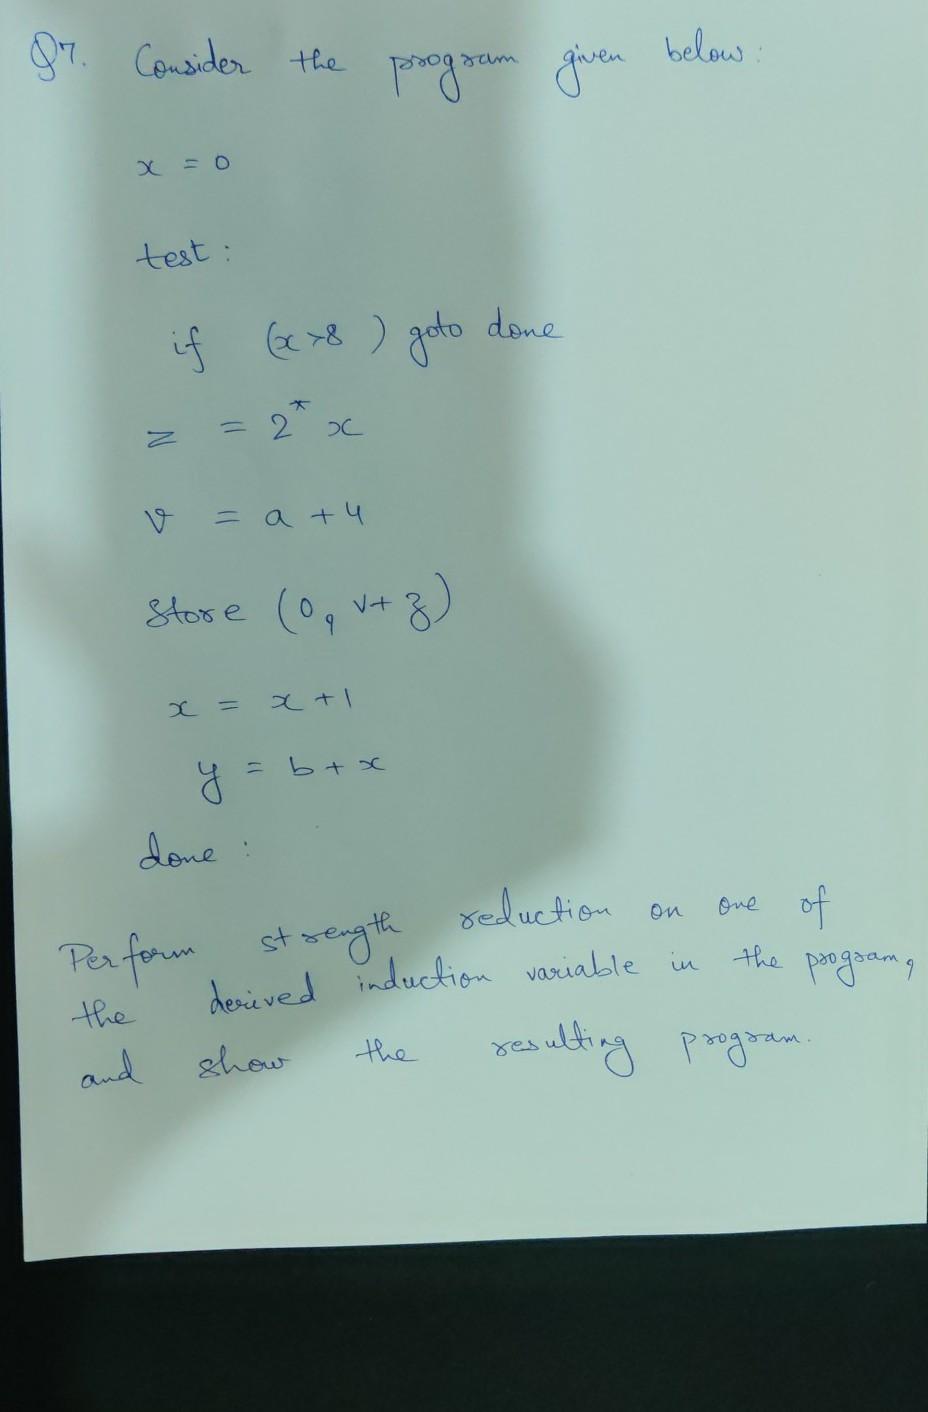 Q7. Consider the program given below:
x = 0
test:
if (x>8) goto done
z = 2* x
v = a + 4
Store (0, v+z)
x = x+1
y = b + x
done:
Perform strength reduction on one of
the derived induction variable in the program,
and show the resulting program.